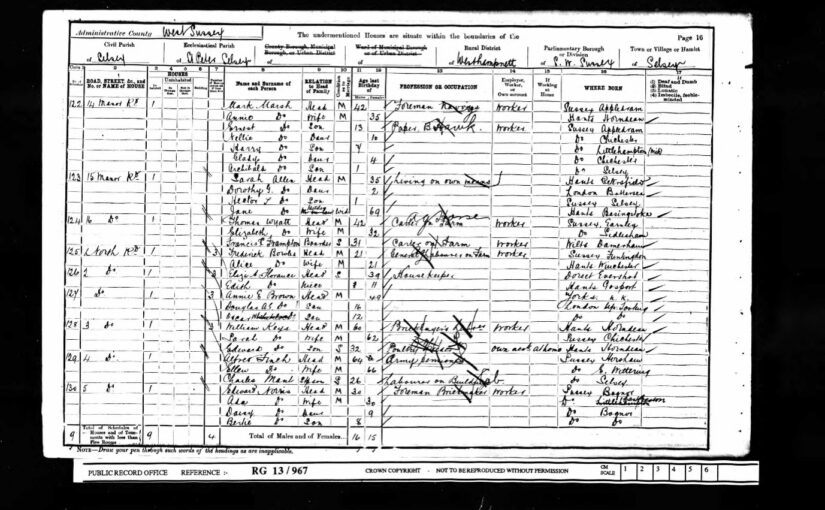 Administrative County West Sussex
The undermentioned Houses are situate within the boundaries of the
Page 16
Civil Parish
of Selsey
Ecclesiastical Parish
of St Peter Selsey
County Borough, Municipal Borough, or Urban District
of
Ward of Municipal Borough or of Urban District
of
Rural District
of Westhampnett
Parliamentary Borough or Division
of S. W. Sussex
Town or Village or Hamlet
of Selsey
ROAD, STREET, &c., and No. or NAME of HOUSE
HOUSES
Name and Surname of each Person
RELATION to Head of Family
Age last Birthday of
PROFESSION OR OCCUPATION
Employer, Worker, or Own account
If Working at Home
WHERE BORN
(1) Deaf and Dumb
(2) Blind
(3) Lunatic
(4) Imbecile, feeble-minded
122 14 Manor Rd 1 Mark Marsh Head M 42 Foreman Worker Sussex Appledram
Annie Do Wife M 35 Hants Horndean
Ernest Do Son 13 Paper Worker Sussex Appledram
Nellie Do Daur 10 Do Chichester
Harry Do Son 7 Do Littlehampton
Gladys Do Daur 4 Do Chichester
Archibald Do Son 1 Do Selsey
123 15 Manor Rd 1 Sarah Allen Head M 35 Living on own means Hants Petersfield
Dorothy G. Do Daur 2 London Battersea
Do Son 1 Sussex Selsey
Jane Do Wid 69 Hants Basingstoke
124 16 Do 1 Thomas Wyatt Head M 42 Carter Farm Worker Sussex Earnley
Elizabeth Do Wife M 32 Do Sidlesham
Francis Frampton Boarder S 31 Carter on Farm Worker Wilts Damerham
125 1 North Rd 1 3 Frederick Bowles Head M 21 General on Farm Worker Sussex Funtington
Alice Do Wife M 21 Hants Winchester
126 2 Do 1 3 Florance Head S 39 Housekeeper Dorset Evershot
Edith Do Niece 11 Hants Gosport
127 Do 1 3 Annie E Brown Head M 49
Do Son 14 London Up. Tooting
Oscar Son 12 Do Do
128 3 Do 1 William Keys Head M 60 Bricklayer's Worker Hants Horndean
Sarah Do Wife M 62 Sussex Chichester
Edward Do Son S 32 Poultry own acct at home Hants Horndean
129 4 Do 1 Alfred Finch Head M 64 Army pensioner Sussex
Ellen Do Wife M 66 Do E. Wittering
Charles S 26 Labourer on Buildings Do Selsey
130 5 Do 1 Edward Norris Head M 30 Foreman Worker Sussex Bognor
Ada Do Wife M 30 Do
Daisy Do Daur 9 Do Bognor
Bertie Do Son 8 Do Do
9 Total of Schedules of Houses and of Tenements with less than Five Rooms 9 4 Total of Males and of Females 16 15
NOTE—Draw your pen through such words of the headings as are inapplicable.
PUBLIC RECORD OFFICE REFERENCE :- RG 13/967 CROWN COPYRIGHT - NOT TO BE REPRODUCED WITHOUT PERMISSION CM SCALE 1 2 3 4 5 6